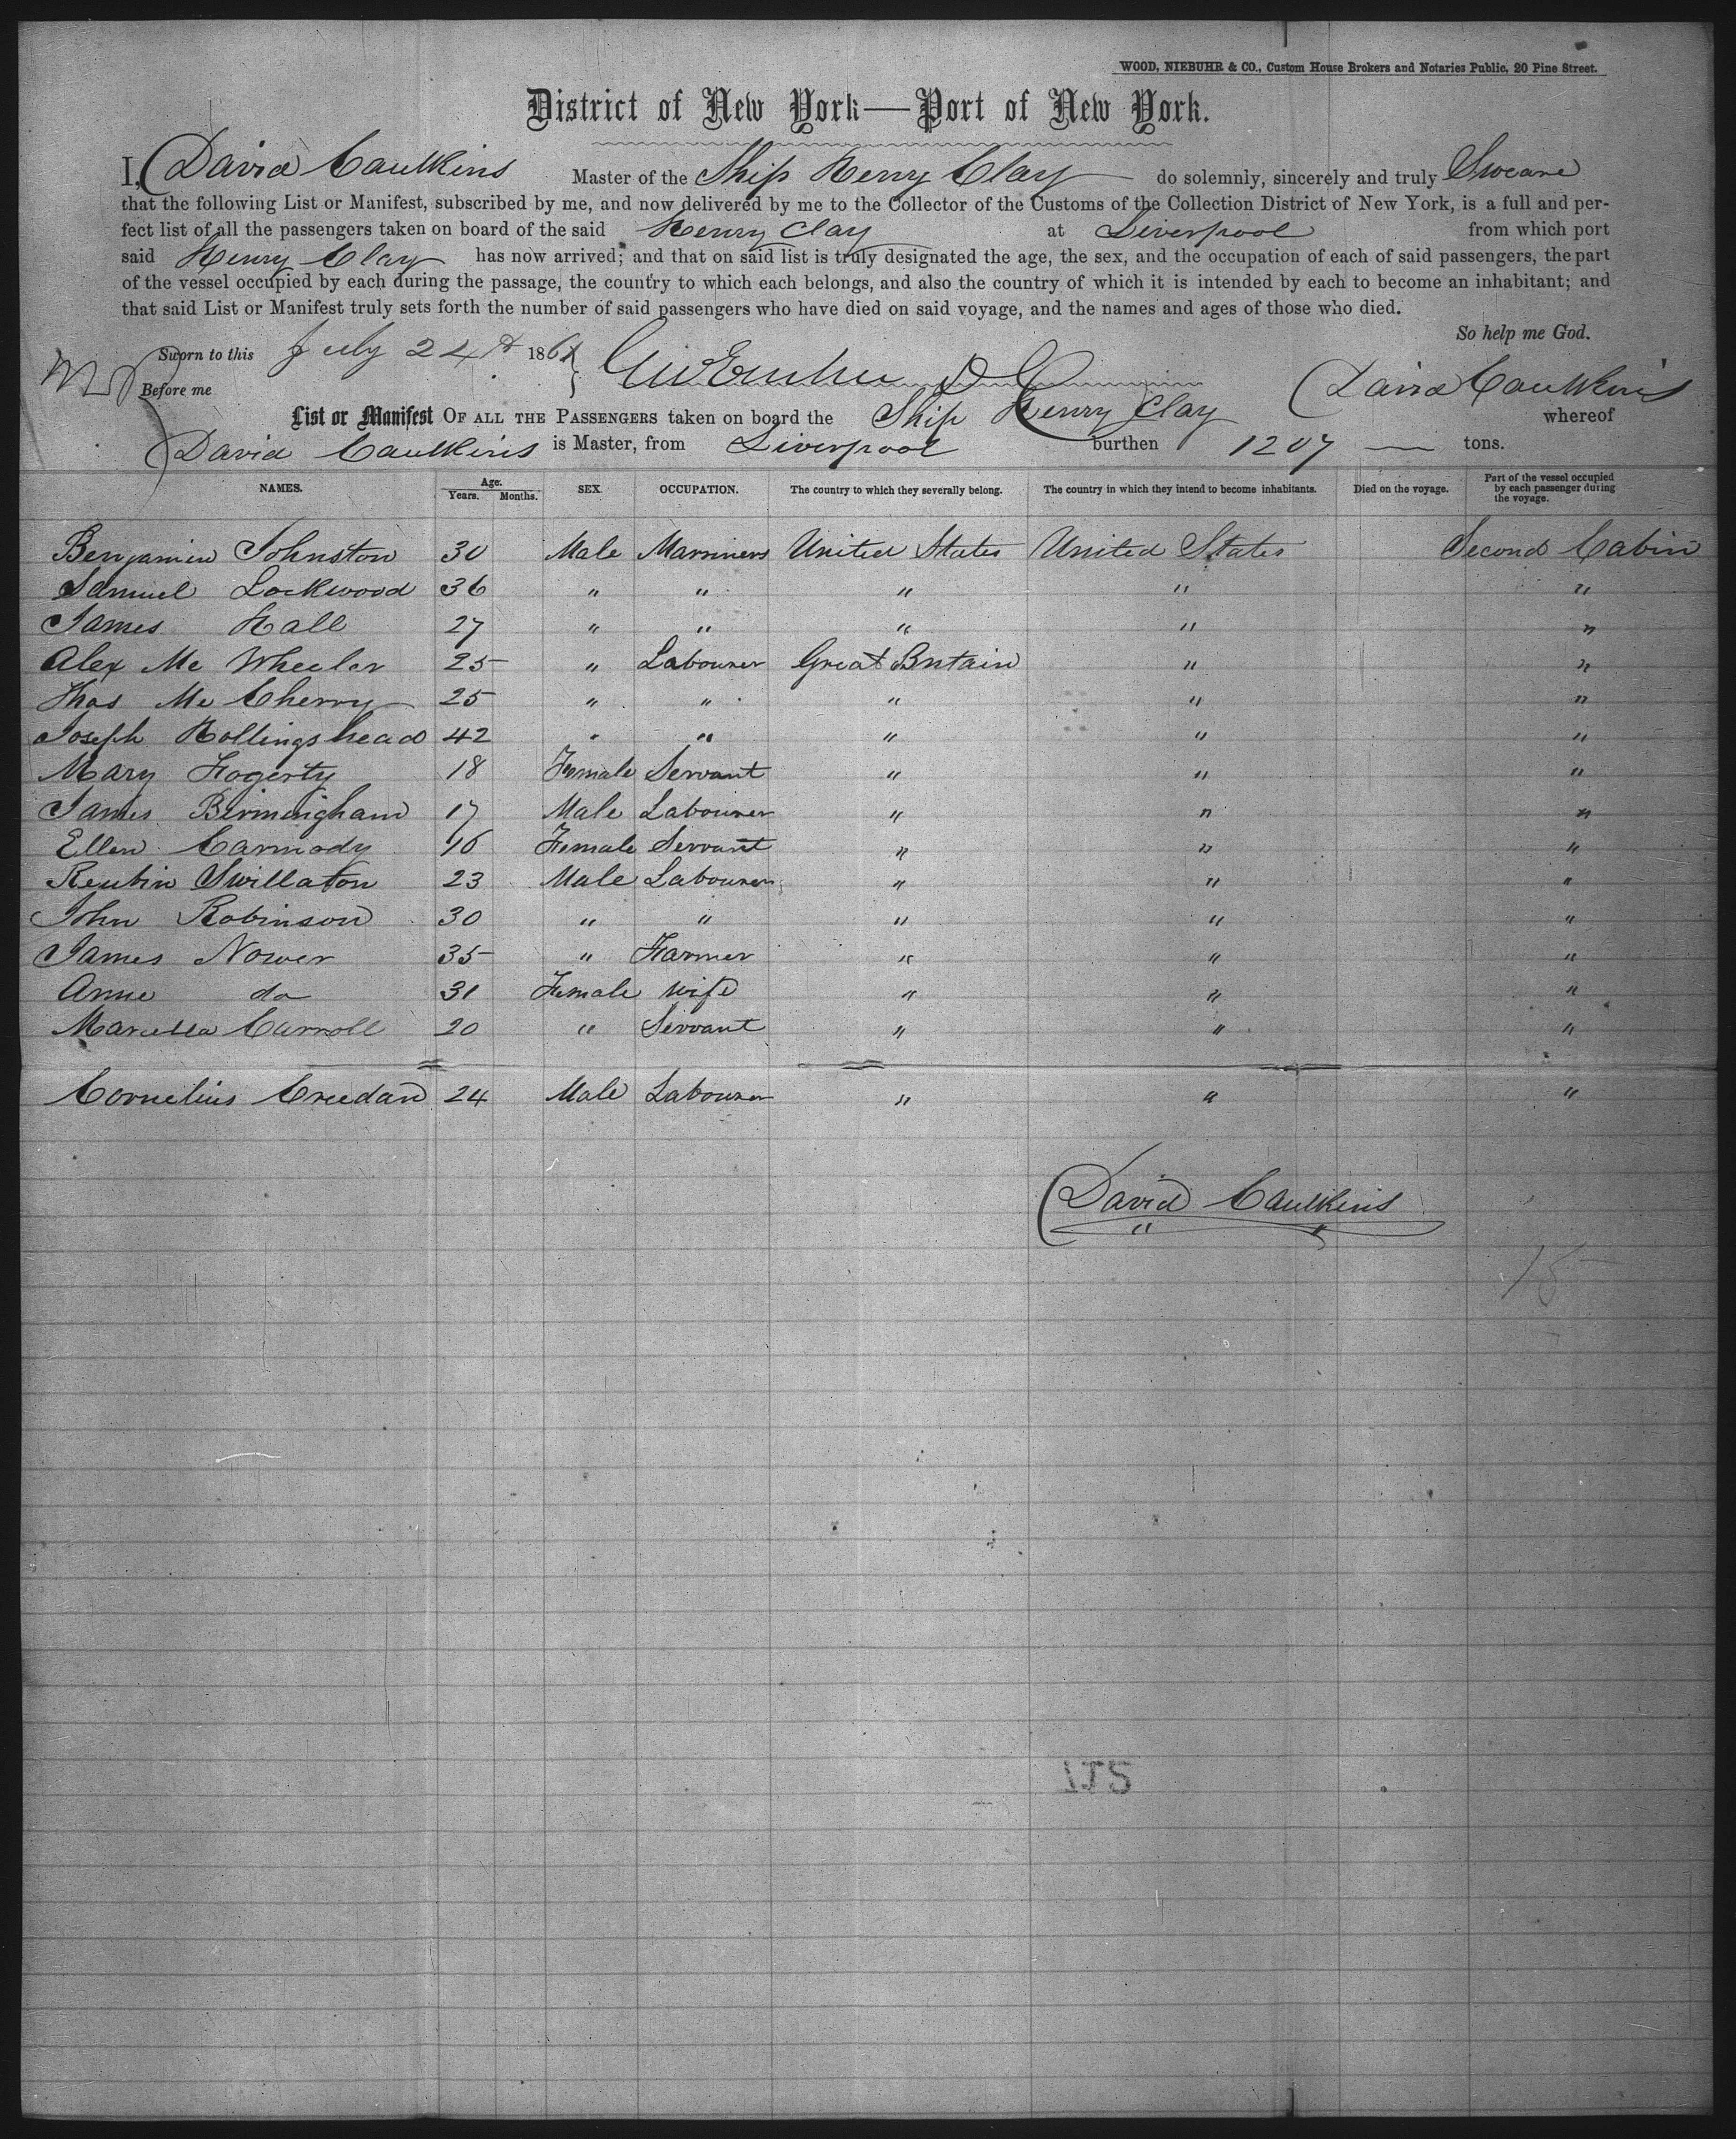 WOOD, NIEBUHR & CO., Custom House Brokers and Notaries Public, 20 Pine Street.
District of New York—Port of New York.
I, David Caulkins Master of the Ship Henry Clay do solemnly, sincerely and truly Sweare
that the following List or Manifest, subscribed by me, and now delivered by me to the Collector of the Customs of the Collection District of New York, is a full and per-
fect list of all the passengers taken on board of the said Henry Clay at Liverpool from which port
said Henry Clay has now arrived; and that on said list is truly designated the age, the sex, and the occupation of each of said passengers, the part
of the vessel occupied by each during the passage, the country to which each belongs, and also the country of which it is intended by each to become an inhabitant; and
that said List or Manifest truly sets forth the number of said passengers who have died on said voyage, and the names and ages of those who died.
So help me God.
Sworn to this July 24th 1861
Before me David Caulkins
List or Manifest OF ALL THE PASSENGERS taken on board the Ship Henry Clay whereof
David Caulkins is Master, from Liverpool burthen 1207 tons.
NAMES. Age. Years. Months. SEX. OCCUPATION. The country to which they severally belong. The country in which they intend to become inhabitants. Died on the voyage. Part of the vessel occupied by each passenger during the voyage.
Benjamin Johnston 30 Male Marriners United States United States Second Cabin
Samuel Lockwood 36 " " " " "
James Hall 27 " " " " "
Alex Mc Wheeler 25 " Labourer Great Britain " "
Thos Mc Cherry 25 " " " " "
Joseph Hollingshead 42 " " " " "
Mary Fogerty 18 Female Servant " " "
James Birmingham 17 Male Labourer " " "
Ellen Carmody 16 Female Servant " " "
Reubin Swillaton 23 Male Labourer " " "
John Robinson 30 " " " " "
James Nower 35 " Farmer " " "
Anne do 31 Female Wife " " "
Marcella Carroll 20 " Servant " " "
Cornelius Creedan 24 Male Labourer " " "
David Caulkins
" "
15